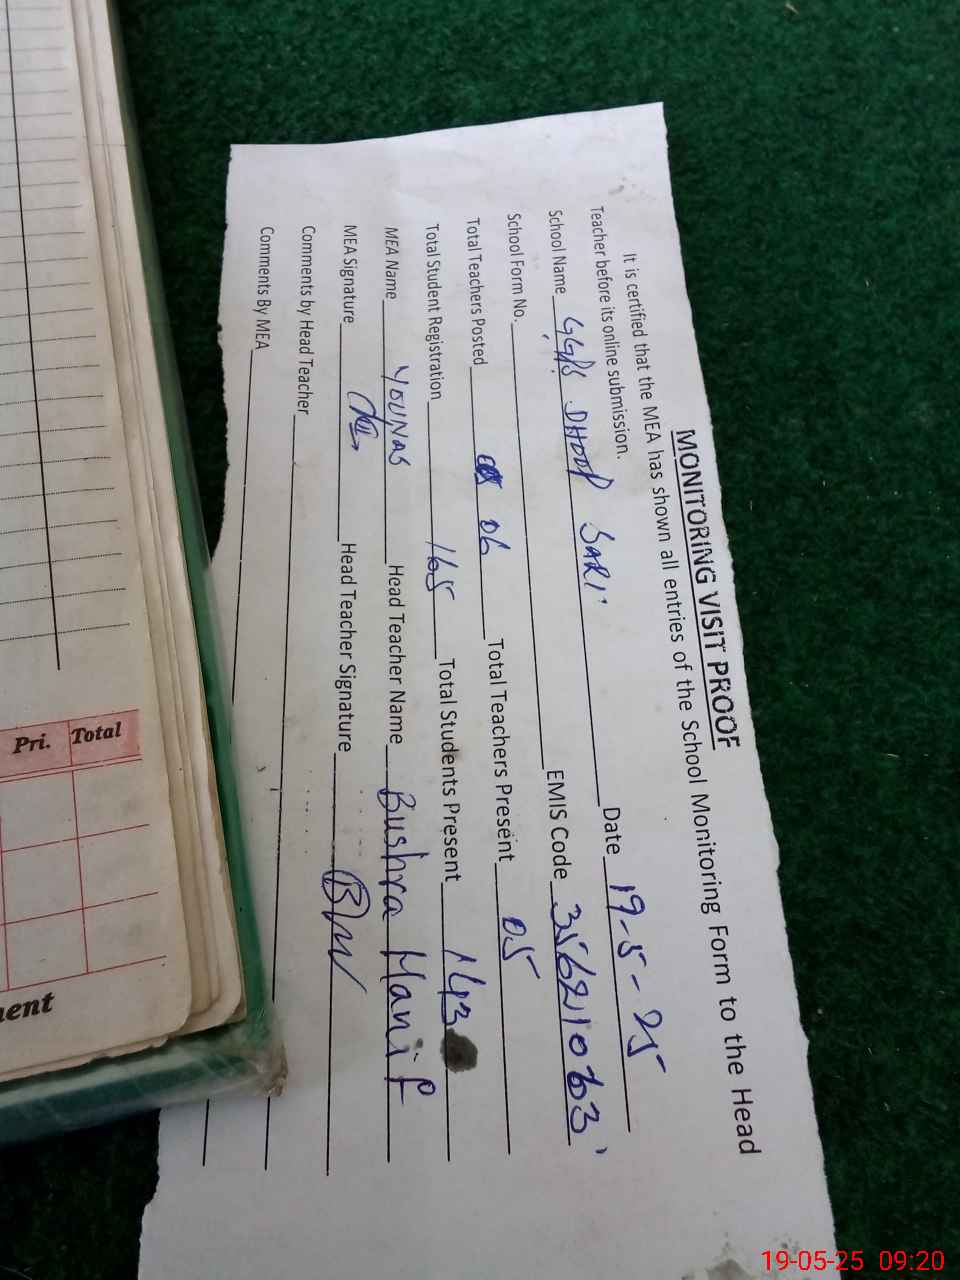 MONITORING VISIT PROOF
It is certified that the MEA has shown all entries of the School Monitoring Form to the Head
Teacher before its online submission.
School Name GGPS DHOOP SARI Date 19-5-25
School Form No. EMIS Code 35621063
Total Teachers Posted 06 Total Teachers Present 05
Total Student Registration 165 Total Students Present 143
MEA Name YOUNAS Head Teacher Name Bushra Hanif
MEA Signature Head Teacher Signature
Comments by Head Teacher
Comments By MEA
Pri. Total
ment
19-05-25 09:20